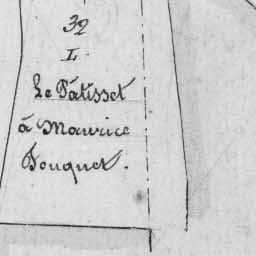 32
L.
Le Pâtisset
à Maurice
Fouquet.